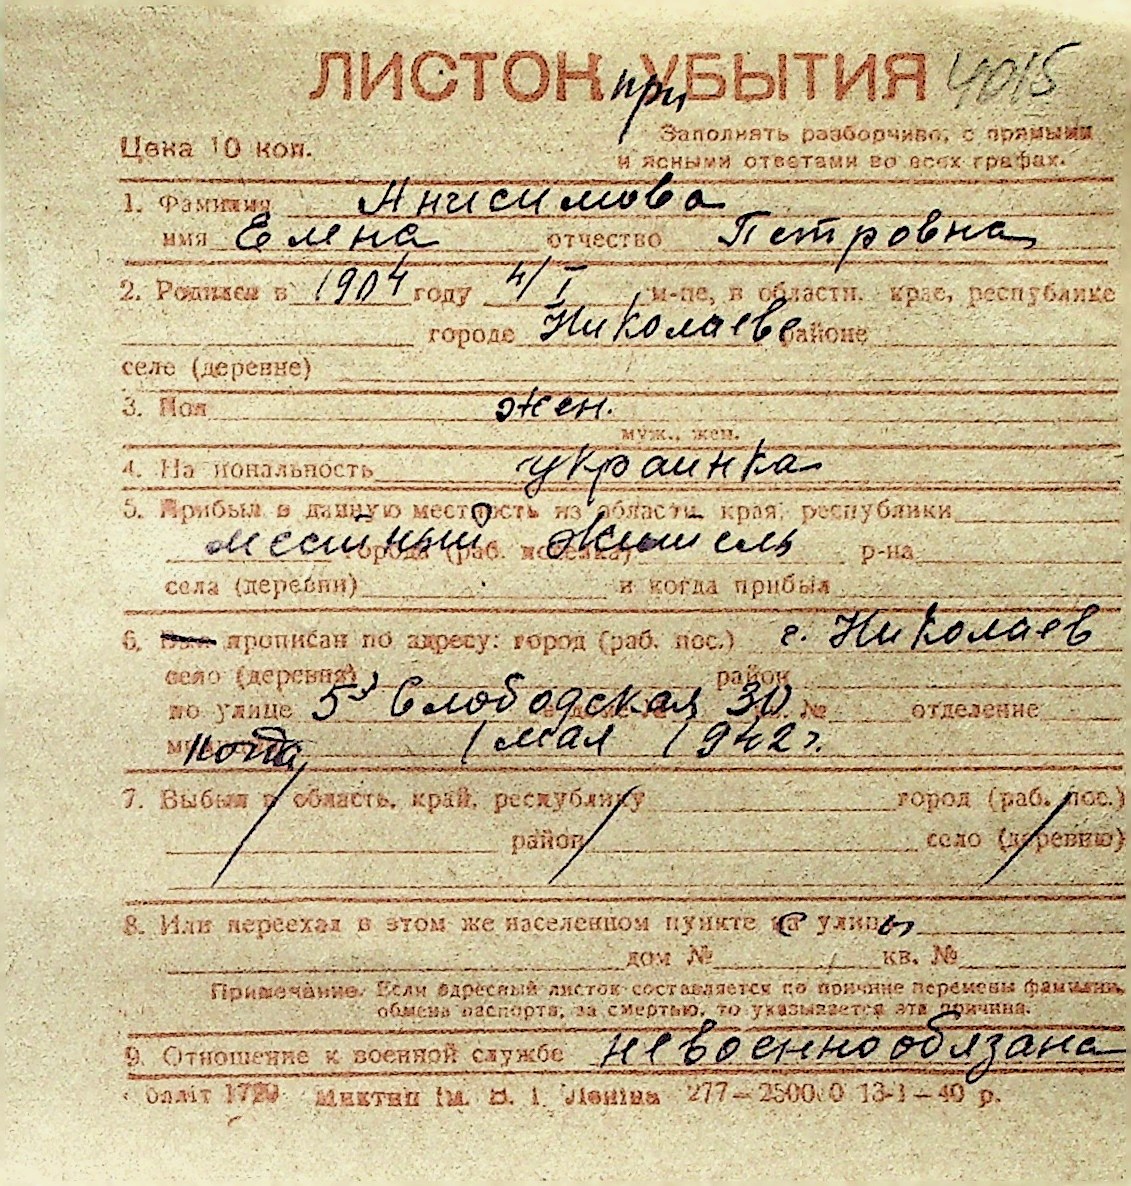 ЛИСТОК при УБЫТИЯ 4015
Цена 10 коп.
Заполнять разборчиво, с прямыми
и ясными ответами во всех графах.
1. Фамилия Анисимова
имя Елена отчество Петровна
2. Родился в 1904 году 4/I м-це, в области, крае, республике
городе Николаеве районе
селе (деревне)
3. Пол жен.
муж., жен.
4. Национальность украинка
5. Прибыл в данную местность из области, края, республики
местный города (раб. поселка) житель р-на
села (деревни) и когда прибыл
6. Был прописан по адресу: город (раб. пос.) г. Николаев
село (деревня) район
по улице 5я Слободская 30 кв. № отделение
1 мая 1942 г.
7. Выбыл в область, край, республику город (раб. пос.)
район село (деревню)
8. Или переехал в этом же населенном пункте с улицы
дом № кв. №
Примечание. Если адресный листок составляется по причине перемены фамилии,
обмена паспорта, за смертью, то указывается эта причина.
9. Отношение к военной службе невоеннообязана
Облліт Миктип ім. В. І. Леніна 277—250000 13-I—40 р.